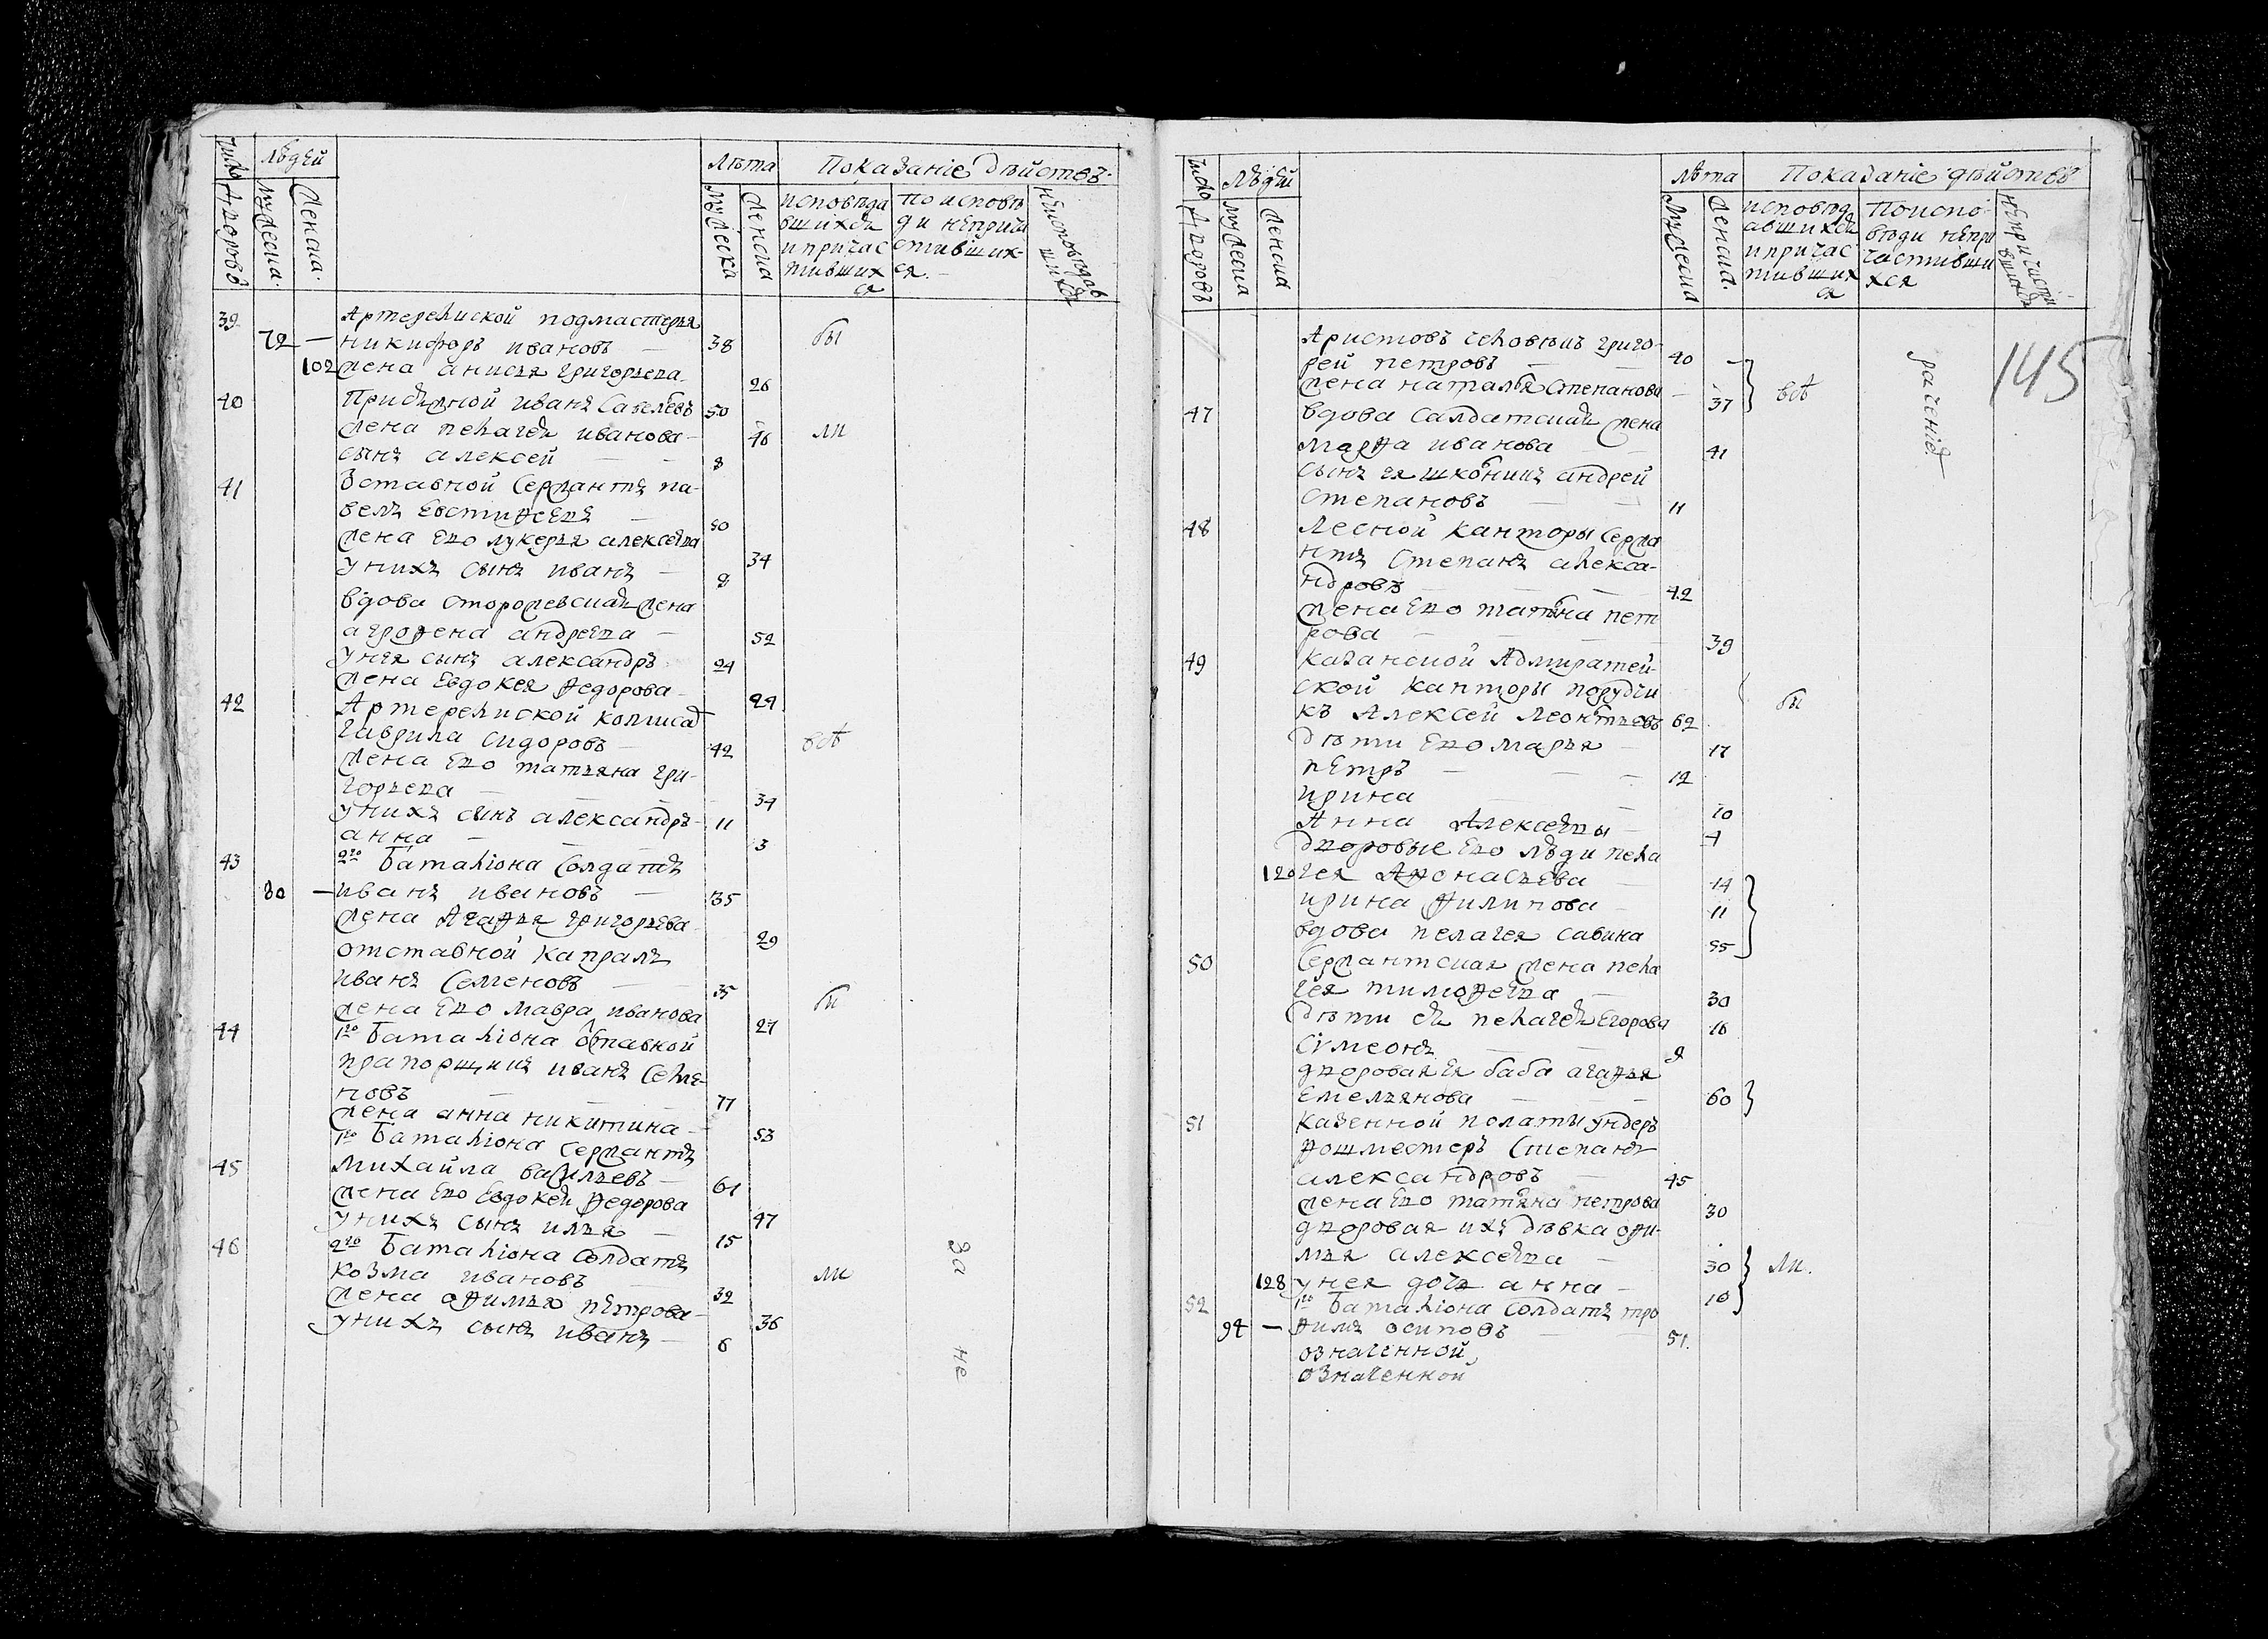 Число Дворовъ
Людей
Мужеска
Женска
Лѣта
Мужеска
Женска
Показаніе дѣйствъ
исповѣда
вшихся
и причас
тивших
ся
По исповѣ
ди неприча
стивших
ся
Неисповѣдав
шихся
39 Артерелиской подмастерья
72 — никифоръ ивановъ — 38 бы
102 жена анисья григорьева 26
40 Приѣжжой иванъ Савелѣвъ 50
жена пелагея иванова 46 ли
сынъ алексей 8
41 Зставной Сержантъ па-
велъ Евстифеевъ 80
жена Ево лукерья алексѣева 34
у нихъ сынъ иванъ — 8
вдова сторожевская жена
агрофена андреева — 52
у нея сынъ александръ 24
жена Евдокея федорова 24
42 Артерелиской комисаръ
гаврила сидоровъ 42 всѣ
жена Ево татьяна гри-
горьева 34
у нихъ сынъ александръ 11
анна 3
43 2го Баталиона Солдатъ
80 — иванъ ивановъ 35
жена Агафья григорьева 29
отставной капралъ
иванъ Семеновъ 35
жена Ево мавра иванова 27 бы
44 1го Баталиона отставной
прапорщикъ иванъ Семе-
новъ 77
жена анна никитина 53
1го Баталиона Сержантъ
45 Михайла васильевъ 61
жена Ево Евдокея федорова 47
у нихъ сынъ илья 15
46 2го Баталиона Солдатъ
козма ивановъ 32 ли
жена афимья петрова 36
у нихъ сынъ иванъ 6
за
не
Число Дворовъ
Людей
Мужеска
Женска
Лѣта
Мужеска
Женска
Показаніе дѣйствъ
исповѣд
авшихся
и причас
тивших
ся
По испо-
вѣди непри
частивши
хся
145
раченіе
Аристовъ человекъ григо-
рей петровъ 40
жена наталья Степанова 37 всѣ
47 вдова салдатская жена
марфа иванова 41
сынъ ея школникъ андрей
степановъ 11
48 Лесной канторы Сержа
нтъ Степанъ алекса-
ндровъ 42
жена Ево татьяна пет
рова 39
49 Казанской Адмиралтей-
ской канторы порудчи
къ Алексей Леонтьевъ 62 бы
дѣти Ево марья 17
петръ 12
ирина 10
Анна Алексеевы 7
дворовые Ево люди пела
120 гея Афонасьева 14
ирина филипова 11
вдова пелагея савина 55
50 Сержантская жена пела
гея тимофеева 30
дѣти ея пелагея Егорова 16
Симеонъ 9
дворовая ея баба агафья
Емельянова 60
51 Казенной полаты ундеръ
фошместеръ Степанъ
александровъ 45
жена Ево татьяна петрова 30
дворовая ихъ дѣвка офи-
мья алексеева 30 ли.
128 у нея дочь анна 10
52 1го Баталиона Солдатъ тро
94 — фимъ осиповъ 51.
означенной
означенной